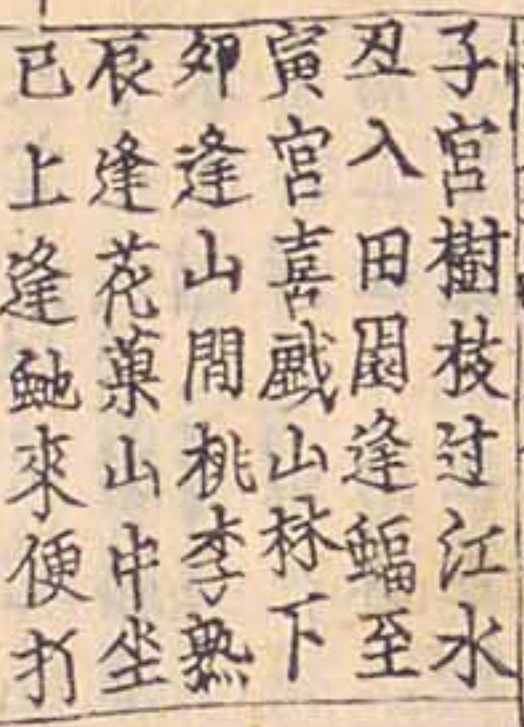 子宮樹枝过江水
丑入田園逢蝠至
寅宮喜戲山林下
卯逢山間桃李熟
辰逢花菓山中坐
巳上逢虵來便打